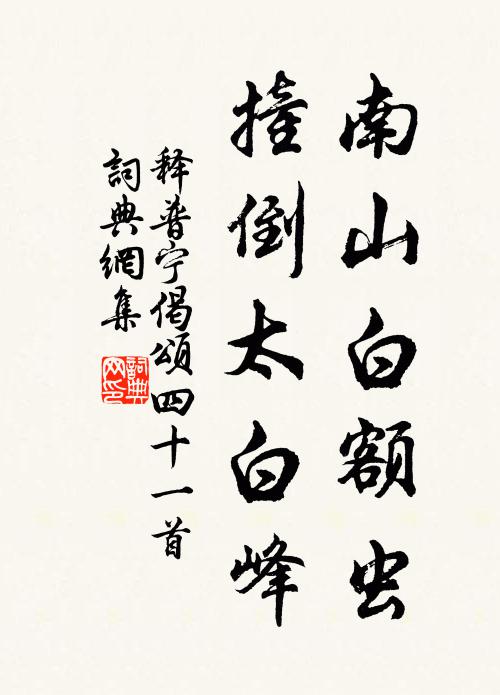 南山白额虫
撞倒太白峰
释普宁偈頌四十一首
詞典網集
詞典网印